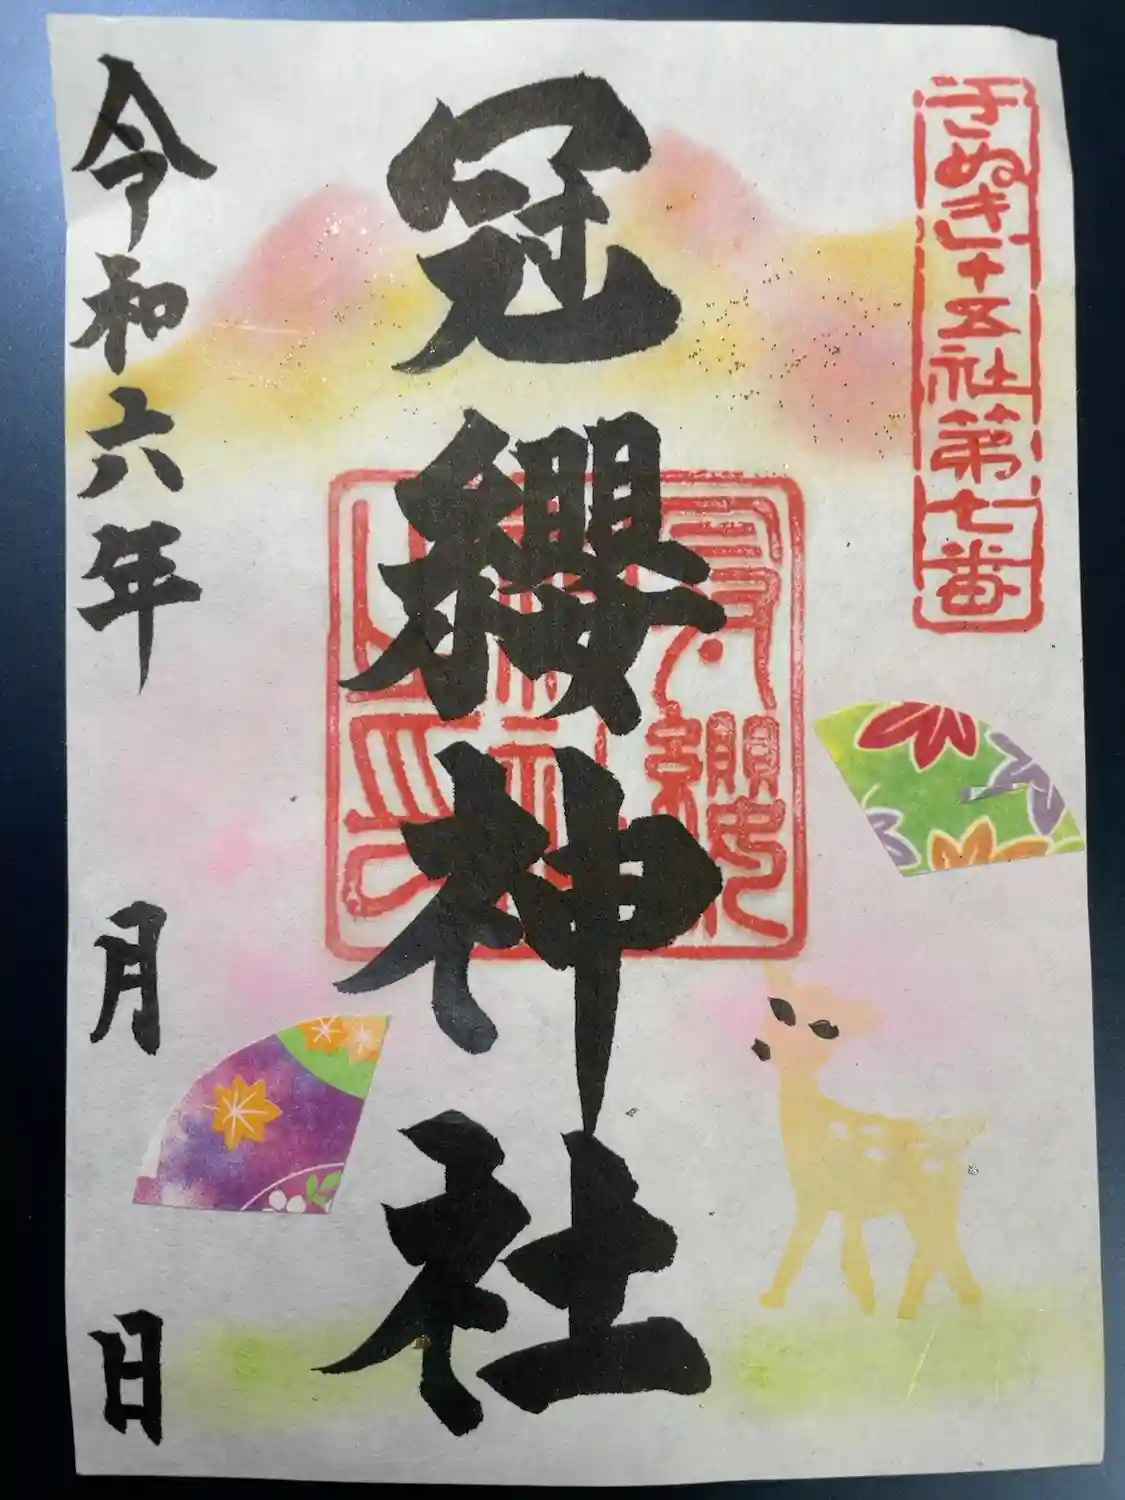 さぬき十五社第七番
冠纓神社
令和六年 月 日